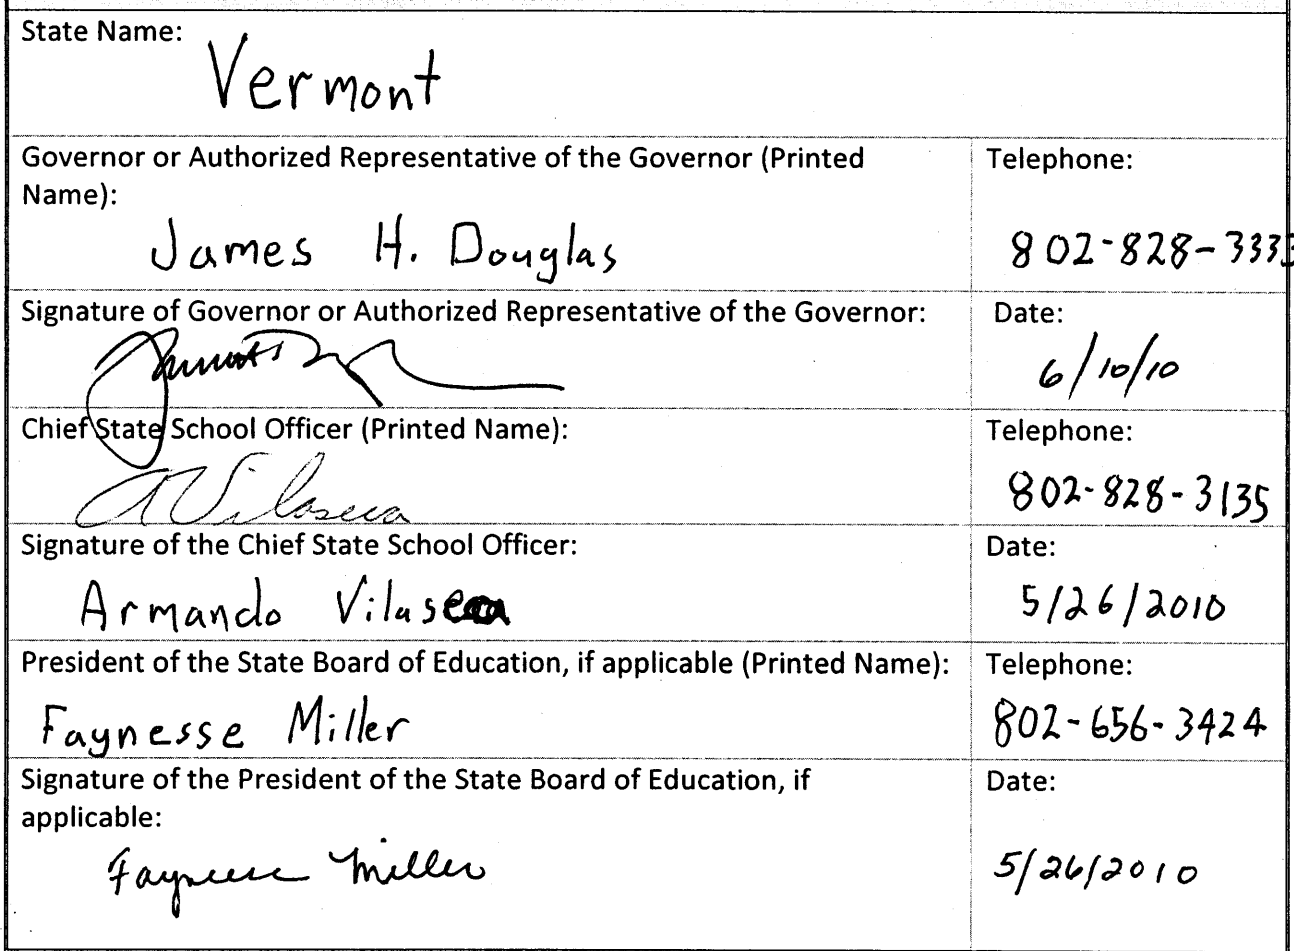 State Name:
Vermont
Governor or Authorized Representative of the Governor (Printed
Name):
Telephone:
James H. Douglas
802-828-3333
Signature of Governor or Authorized Representative of the Governor:
Date:
6/10/10
Chief State School Officer (Printed Name):
Telephone:
A Vilaseca
802-828-3135
Signature of the Chief State School Officer:
Date:
Armando Vilaseca
5/26/2010
President of the State Board of Education, if applicable (Printed Name):
Telephone:
Faynesse Miller
802-656-3424
Signature of the President of the State Board of Education, if
applicable:
Date:
Faynesse Miller
5/26/2010